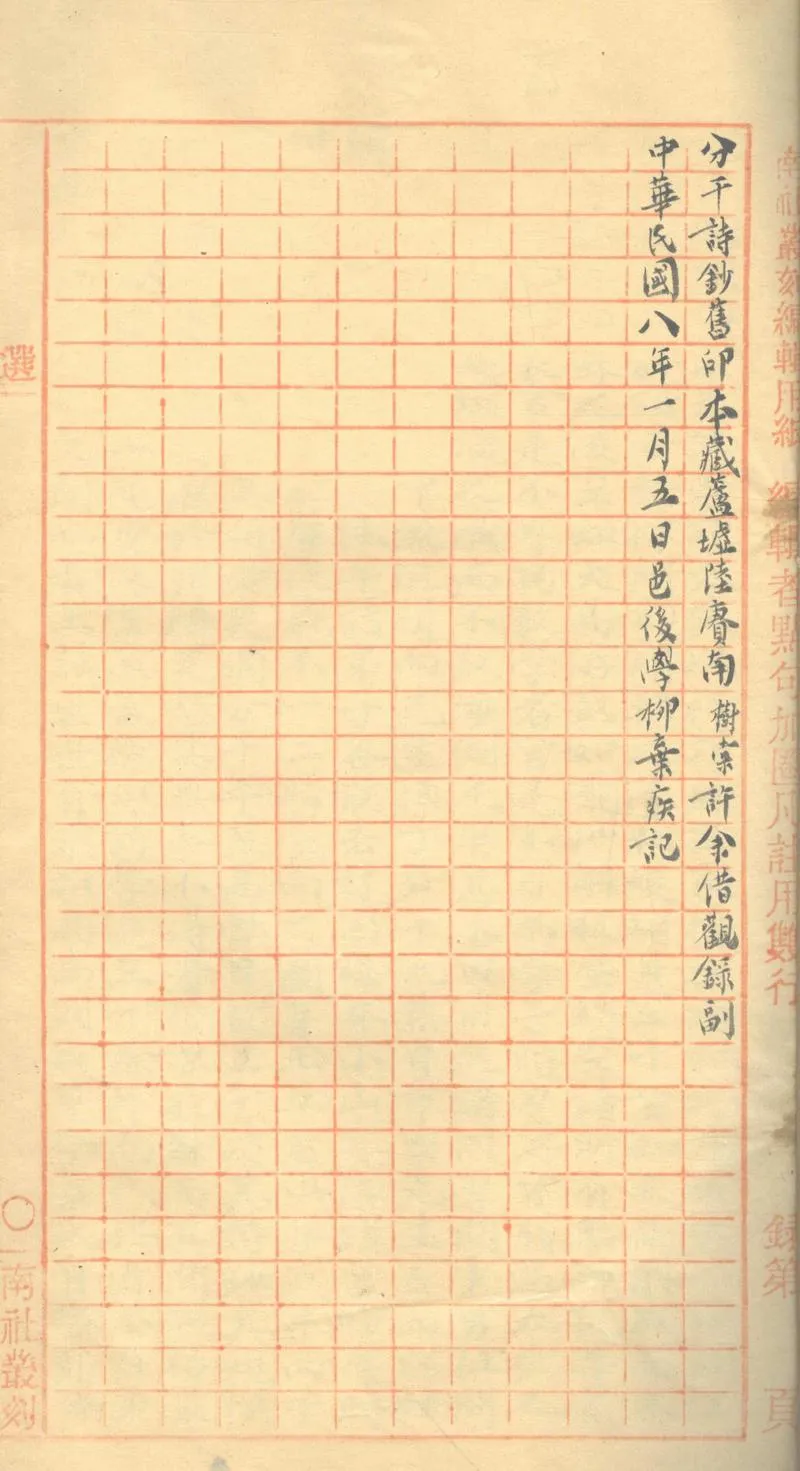 南社叢刻編輯用紙 編輯者點句加圈凡註用雙行 錄第 頁
分干詩鈔舊印本藏蘆墟陸賡南樹棠許余借觀錄副
中華民國八年一月五日邑後學柳棄疾記
選
〇 南社叢刻